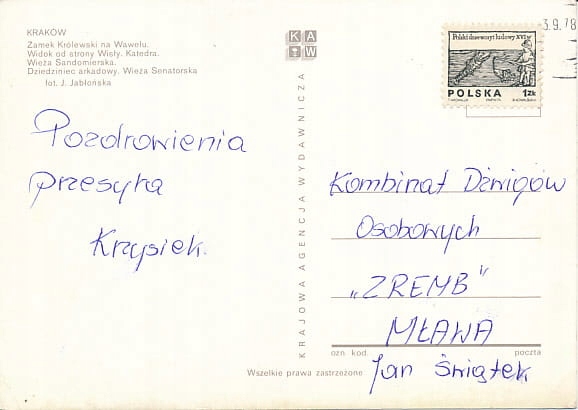 KRAKÓW
Zamek Królewski na Wawelu.
Widok od strony Wisły. Katedra.
Wieża Sandomierska.
Dziedziniec arkadowy. Wieża Senatorska
fot. J. Jabłońska
KAW
3.9.78
Polski drzeworyt ludowy XVI w.
POLSKA 1ZŁ
Pozdrowienia
przesyła
Krzysiek.
KRAJOWA AGENCJA WYDAWNICZA
Kombinat Dźwigów
Osobowych
„ZREMB"
MŁAWA
ozn kod. poczta
Wszelkie prawa zastrzeżone
Jan Świątek